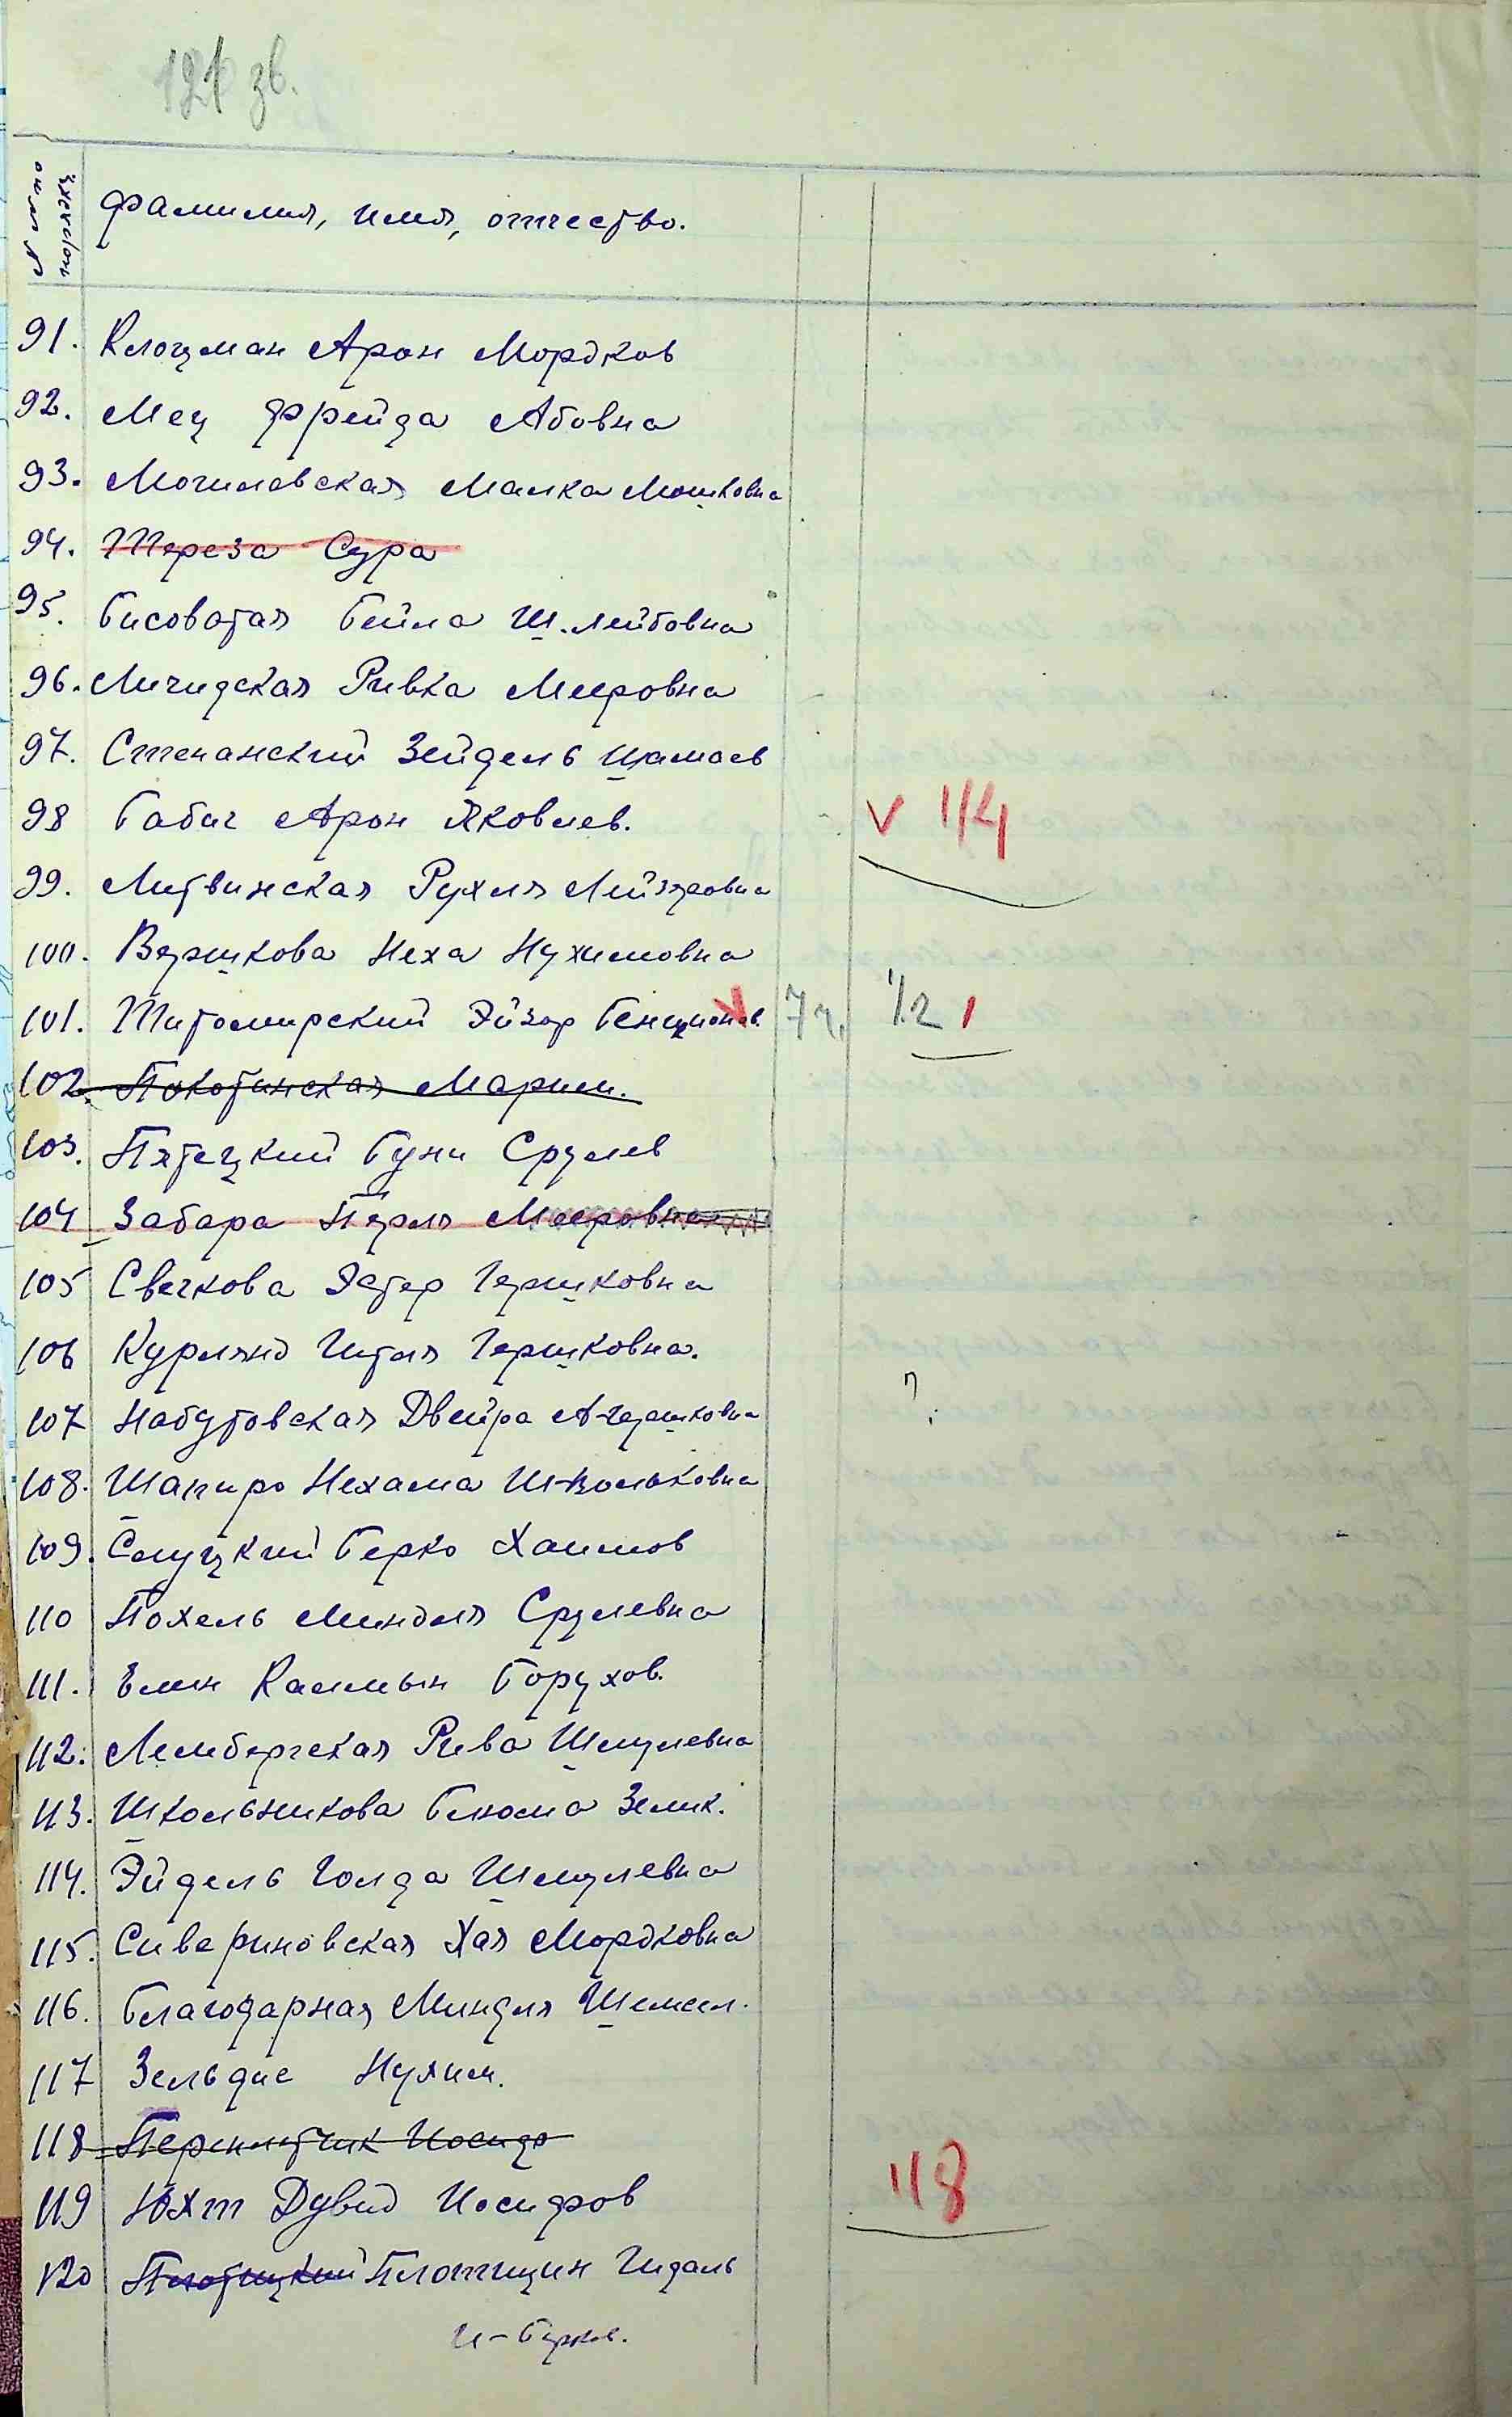 121 зв.
Фамилия, имя, отчество.
91. Клоцман Арон Мордков
92. Мец Фрейда Абовна
93. Могилевская Малка Мошковна
94. Тереза Сура
95. Бисоватая Бейла Ш.Лейбовна
96. Личидская Ривка Мееровна
97. Степанский Зейдель Шамаев
98 Бабич Арон Яковлев. V 114
99. Литвинская Рухля Лейзеровна
100. Вершкова Неха Нухимовна
101. Житомирский Эйзор Бенционов. V 7ч. 1/2 1
102. Покотинская Марим.
103. Пятецкий Буни Срулев
104 Забара Перля Мееровна
105 Свечкова Эстер Гершковна
106 Курлянд Гитля Гершковна.
107 Набутовская Двейра А-Гершковна ?
108. Шапиро Нехама Ш-Вольковна
109. Слуцкий Берко Хаимов
110 Похель Миндля Срулевна
111. Елин Калмын Борухов.
112. Лембергская Рива Шмулевна
113. Школьникова Блюма Зелик.
114. Эйдель Голда Шмулевна
115. Сивериновская Хая Мордковна
116. Благодарная Миндля Шемсил.
117 Зельдис Нухим.
118 Переплетчик Иосиф
119 Юхт Дувид Иосифов 118
120 Плотицкий Плоттицин Гидаль
И-Берков.